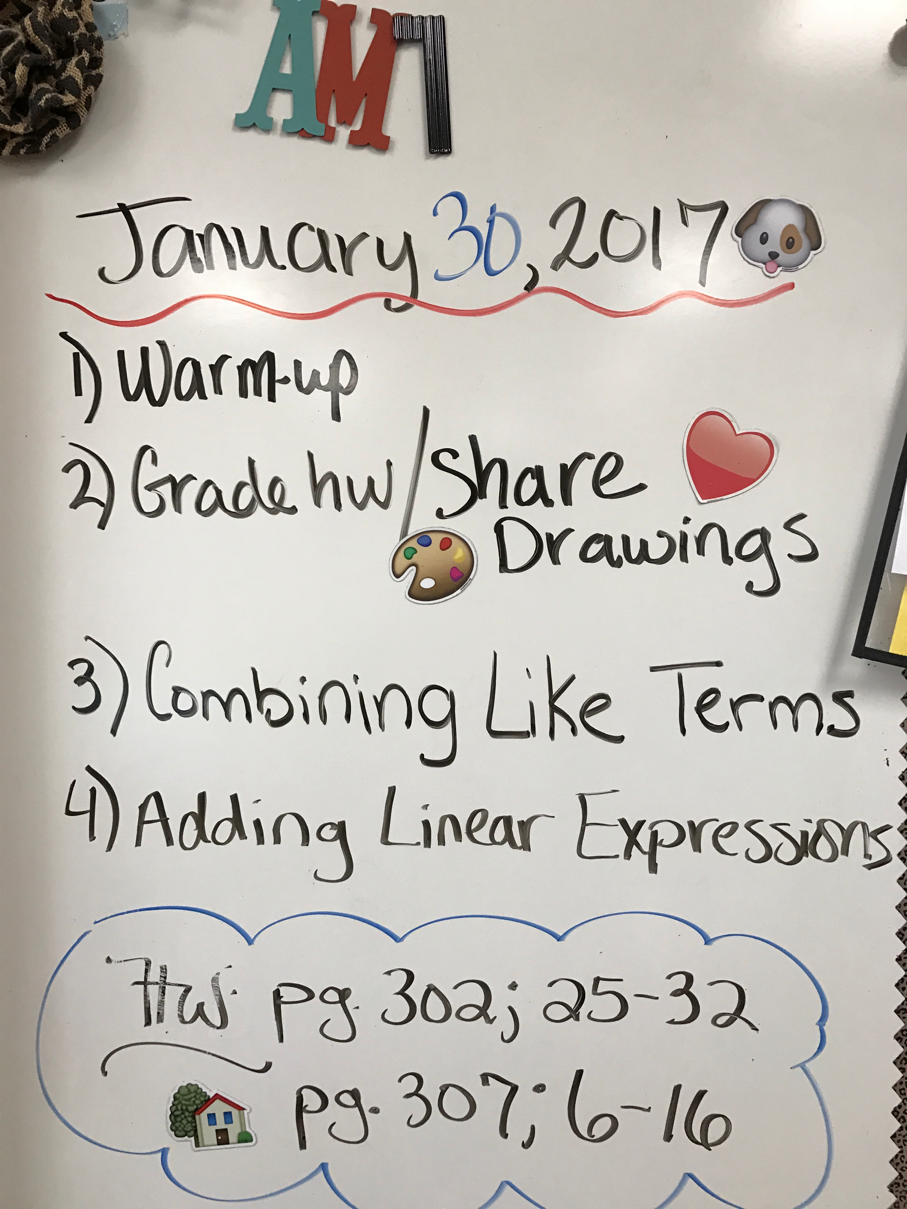 AM7
January 30, 2017
1) Warm-up
2) Grade hw/Share
Drawings
3) Combining Like Terms
4) Adding Linear Expressions
HW pg. 302; 25-32
pg. 307; 6-16